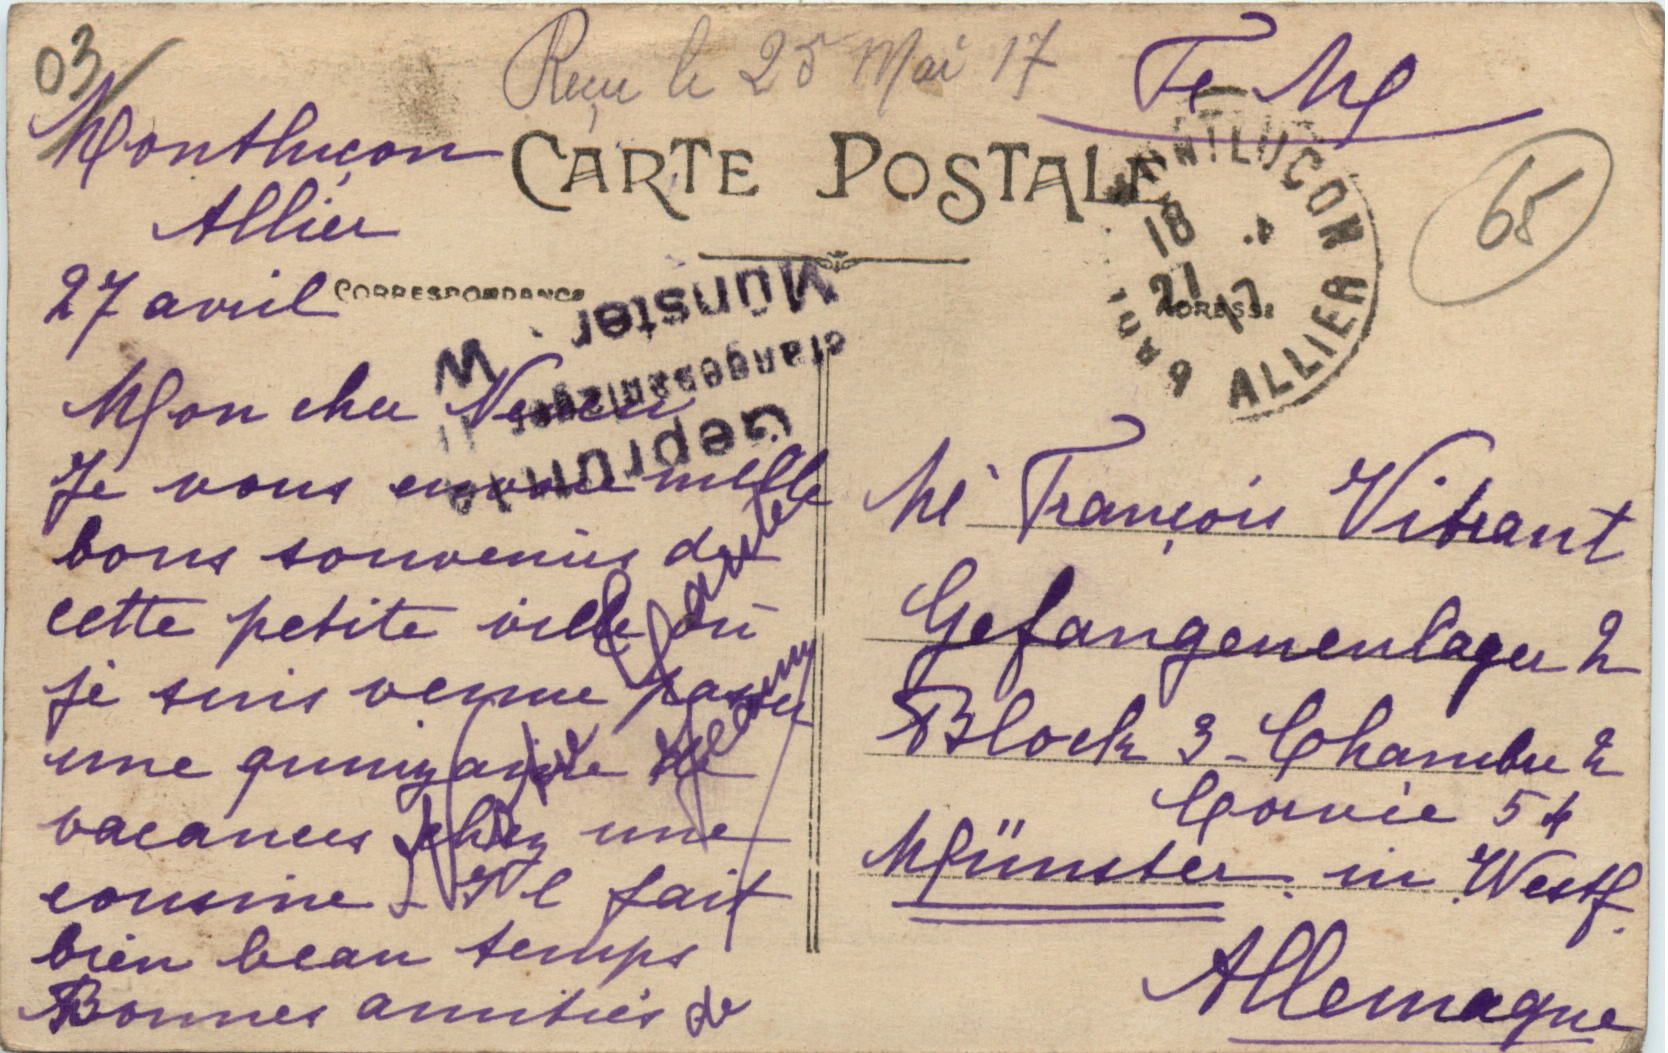 03
Reçu le 25 Mai 17
F. M.
Montluçon
Allier
27 avril
CARTE POSTALE
CORRESPONDANCE
ADRESSE
MONTLUÇON
18
27 4
17
ALLIER
65
Geprüft
Münster W
Mon cher Neveu
Je vous envoie mille
bons souvenirs de
cette petite ville où
je suis venue passer
une quinzaine de
vacances chez une
cousine - Il fait
bien beau temps
Bonnes amitiés de
Mr François Vitrant
Gefangenenlager 2
Block 3 - Chambre 2
Corvée 54
Münster in Westf.
Allemagne